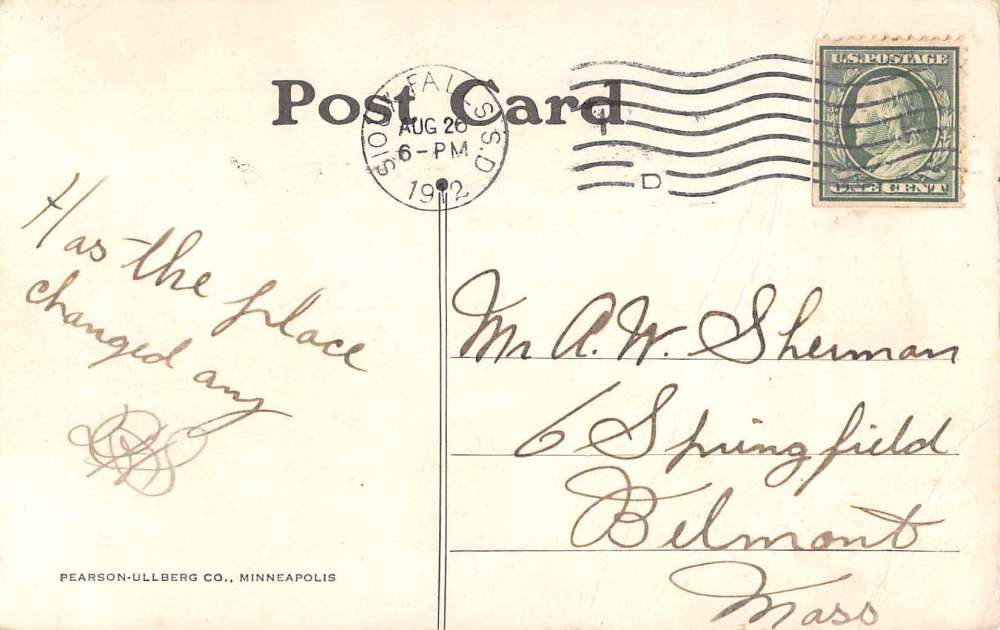 Post Card
SIOUX FALLS S.D.
AUG 26
6-PM
1912
D
U.S. POSTAGE
ONE CENT
Has the place
changed any
Mr A.W. Sherman
6 Springfield
Belmont
Mass
PEARSON-ULLBERG CO., MINNEAPOLIS